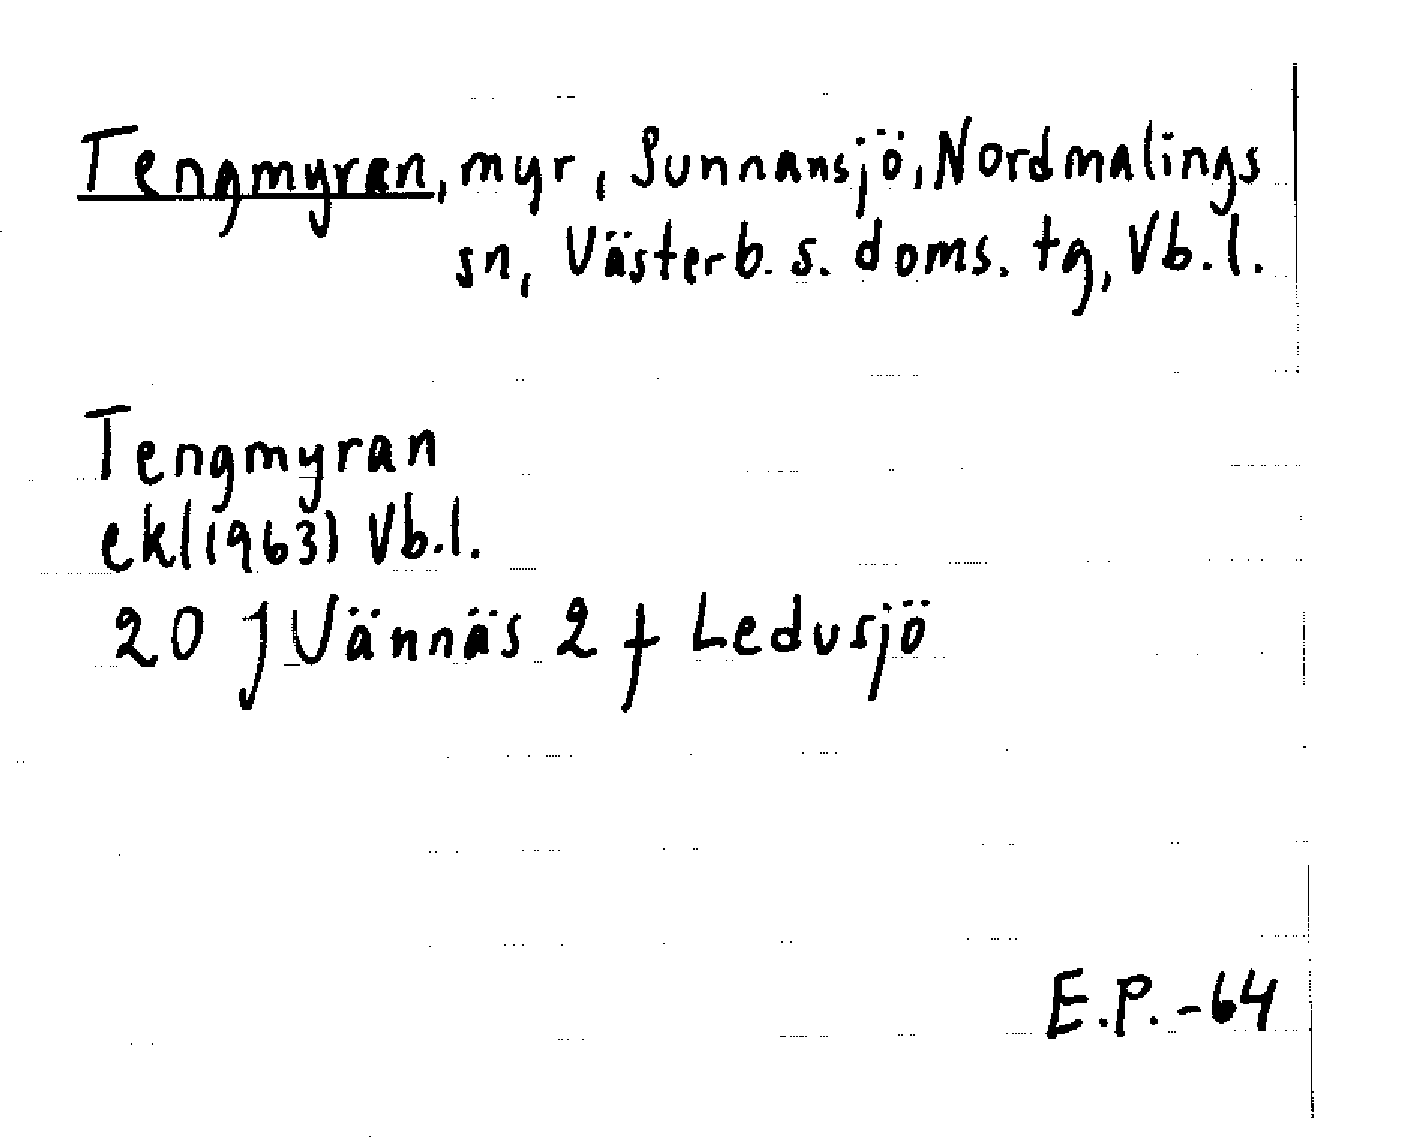 Tengmyran, myr, Sunnansjö, Nordmalings
sn, Västerb. s. doms. tg, Vb.l.
Tengmyran
ekl(1963) Vb.l.
20 J Vännäs 2 f Ledusjö
E.P.-64